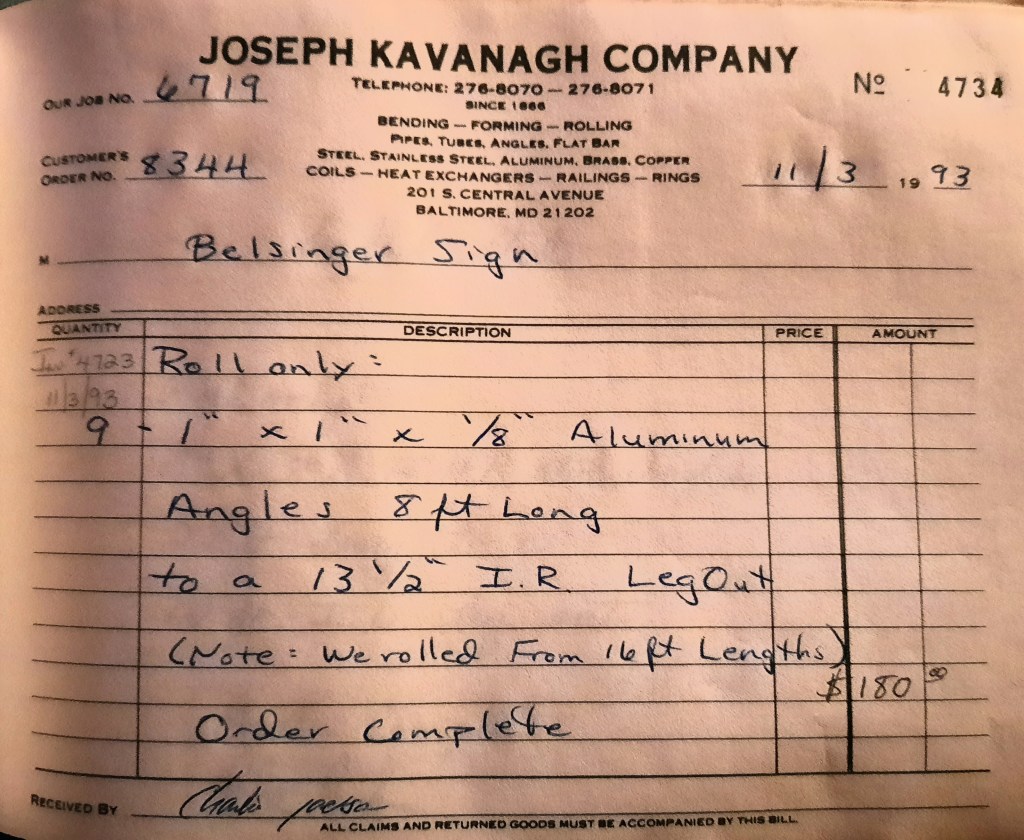 JOSEPH KAVANAGH COMPANY
OUR JOB NO. 6719
TELEPHONE: 276-8070 — 276-8071
Nº 4734
SINCE 1866
BENDING — FORMING — ROLLING
PIPES, TUBES, ANGLES, FLAT BAR
CUSTOMER'S ORDER NO. 8344
STEEL, STAINLESS STEEL, ALUMINUM, BRASS, COPPER
COILS — HEAT EXCHANGERS — RAILINGS — RINGS
11/3 1993
201 S. CENTRAL AVENUE
BALTIMORE, MD 21202
M Belsinger Sign
ADDRESS
QUANTITY DESCRIPTION PRICE AMOUNT
Inv # 4723 Roll only:
11/3/93
9 - 1" x 1" x 1/8" Aluminum
Angles 8 ft Long
to a 13 1/2" I.R. Leg Out
(Note: We rolled From 16 ft Lengths)
$ 180 00
Order Complete
RECEIVED BY Charlie Jackson
ALL CLAIMS AND RETURNED GOODS MUST BE ACCOMPANIED BY THIS BILL